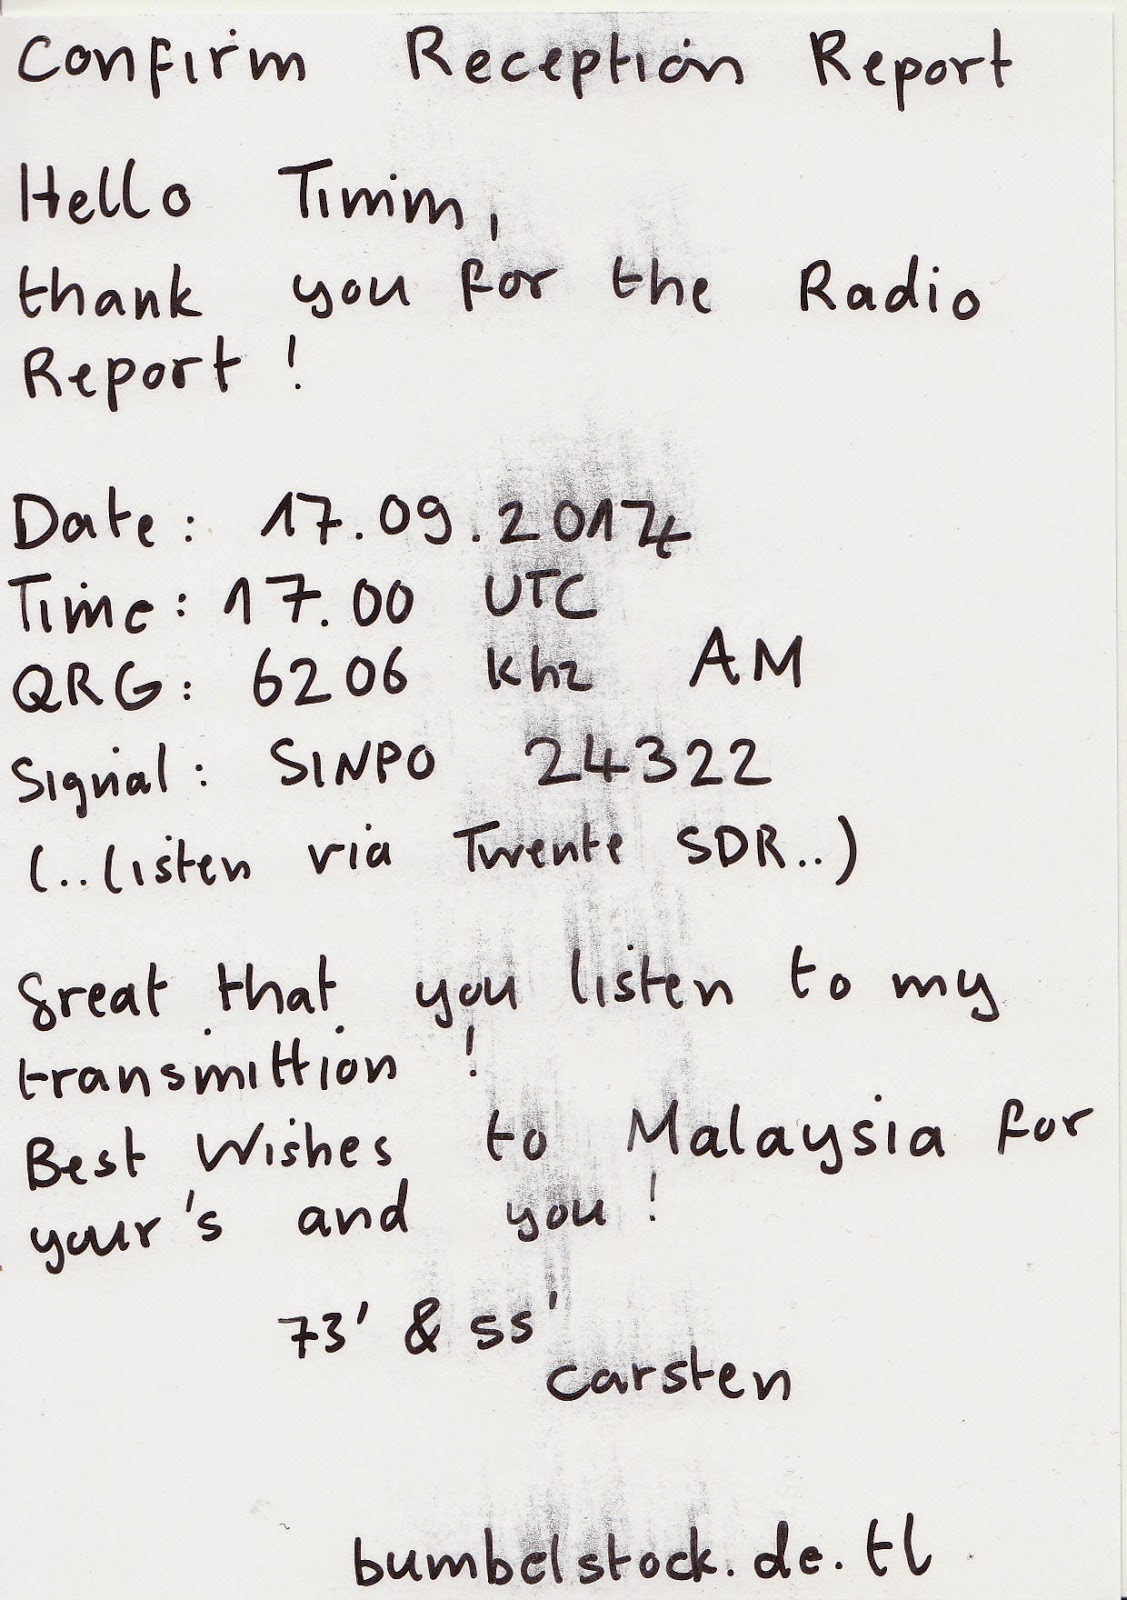 Confirm Reception Report
Hello Timm,
thank you for the Radio
Report!
Date: 17.09.2014
Time: 17.00 UTC
QRG: 6206 Khz AM
Signal: SINPO 24322
(..listen via Twente SDR..)
Great that you listen to my
transmittion!
Best Wishes to Malaysia for
your's and you!
73' & 55'
Carsten
bumbelstock.de.tl